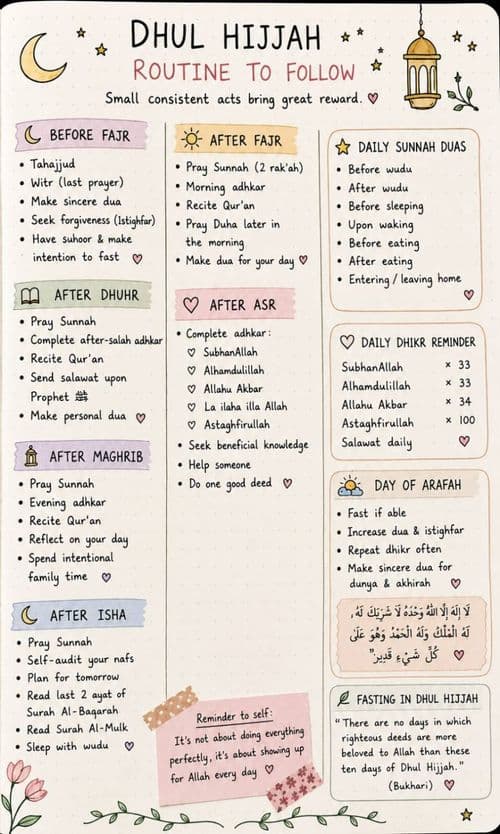 DHUL HIJJAH
ROUTINE TO FOLLOW
Small consistent acts bring great reward.
BEFORE FAJR
• Tahajjud
• Witr (last prayer)
• Make sincere dua
• Seek forgiveness (Istighfar)
• Have suhoor & make
intention to fast
AFTER DHUHR
• Pray Sunnah
• Complete after-salah adhkar
• Recite Qur'an
• Send salawat upon
Prophet ﷺ
• Make personal dua
AFTER MAGHRIB
• Pray Sunnah
• Evening adhkar
• Recite Qur'an
• Reflect on your day
• Spend intentional
family time
AFTER ISHA
• Pray Sunnah
• Self-audit your nafs
• Plan for tomorrow
• Read last 2 ayat of
Surah Al-Baqarah
• Read Surah Al-Mulk
• Sleep with wudu
AFTER FAJR
• Pray Sunnah (2 rak'ah)
• Morning adhkar
• Recite Qur'an
• Pray Duha later in
the morning
• Make dua for your day
AFTER ASR
• Complete adhkar:
SubhanAllah
Alhamdulillah
Allahu Akbar
La ilaha illa Allah
Astaghfirullah
• Seek beneficial knowledge
• Help someone
• Do one good deed
Reminder to self:
It's not about doing everything
perfectly, it's about showing up
for Allah every day
DAILY SUNNAH DUAS
• Before wudu
• After wudu
• Before sleeping
• Upon waking
• Before eating
• After eating
• Entering/leaving home
DAILY DHIKR REMINDER
SubhanAllah × 33
Alhamdulillah × 33
Allahu Akbar × 34
Astaghfirullah × 100
Salawat daily
DAY OF ARAFAH
• Fast if able
• Increase dua & istighfar
• Repeat dhikr often
• Make sincere dua for
dunya & akhirah
لَا إِلٰهَ إِلَّا اللهُ وَحْدَهُ لَا شَرِيْكَ لَهُ،
لَهُ الْمُلْكُ وَلَهُ الْحَمْدُ وَهُوَ عَلَىٰ
كُلِّ شَيْءٍ قَدِيرٌ"
FASTING IN DHUL HIJJAH
"There are no days in which
righteous deeds are more
beloved to Allah than these
ten days of Dhul Hijjah."
(Bukhari)